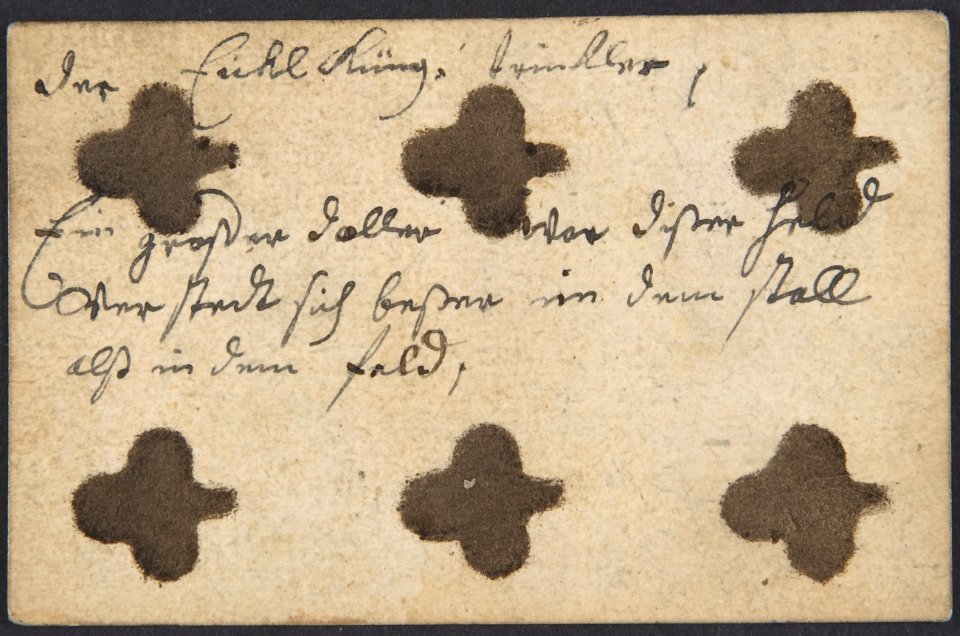 der Eickl Küng: trinkler,
Ein großer doller war dißer held
Ver stedt sich beßer in dem stall
alß in dem feld,